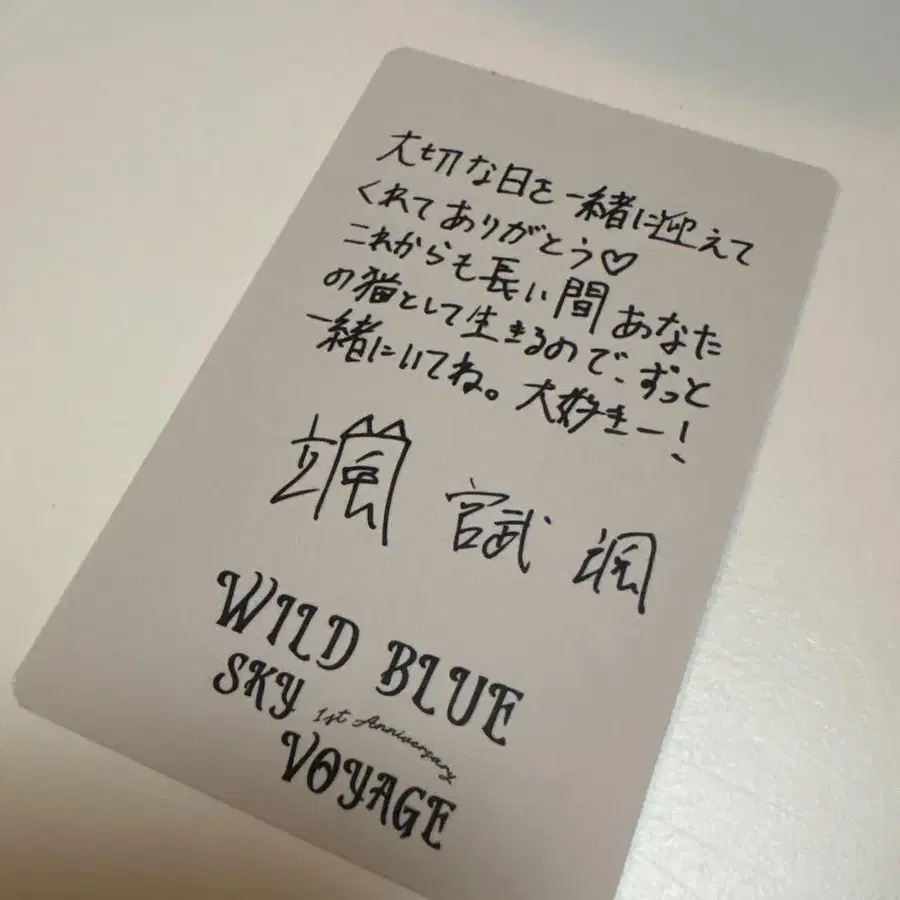 大切な日を一緒に迎えて
くれてありがとう♡
これからも長い間あなた
の猫として生きるので、ずっと
一緒にいてね。大好きー!
颯
颯
WILD BLUE
SKY 1st Anniversary
VOYAGE